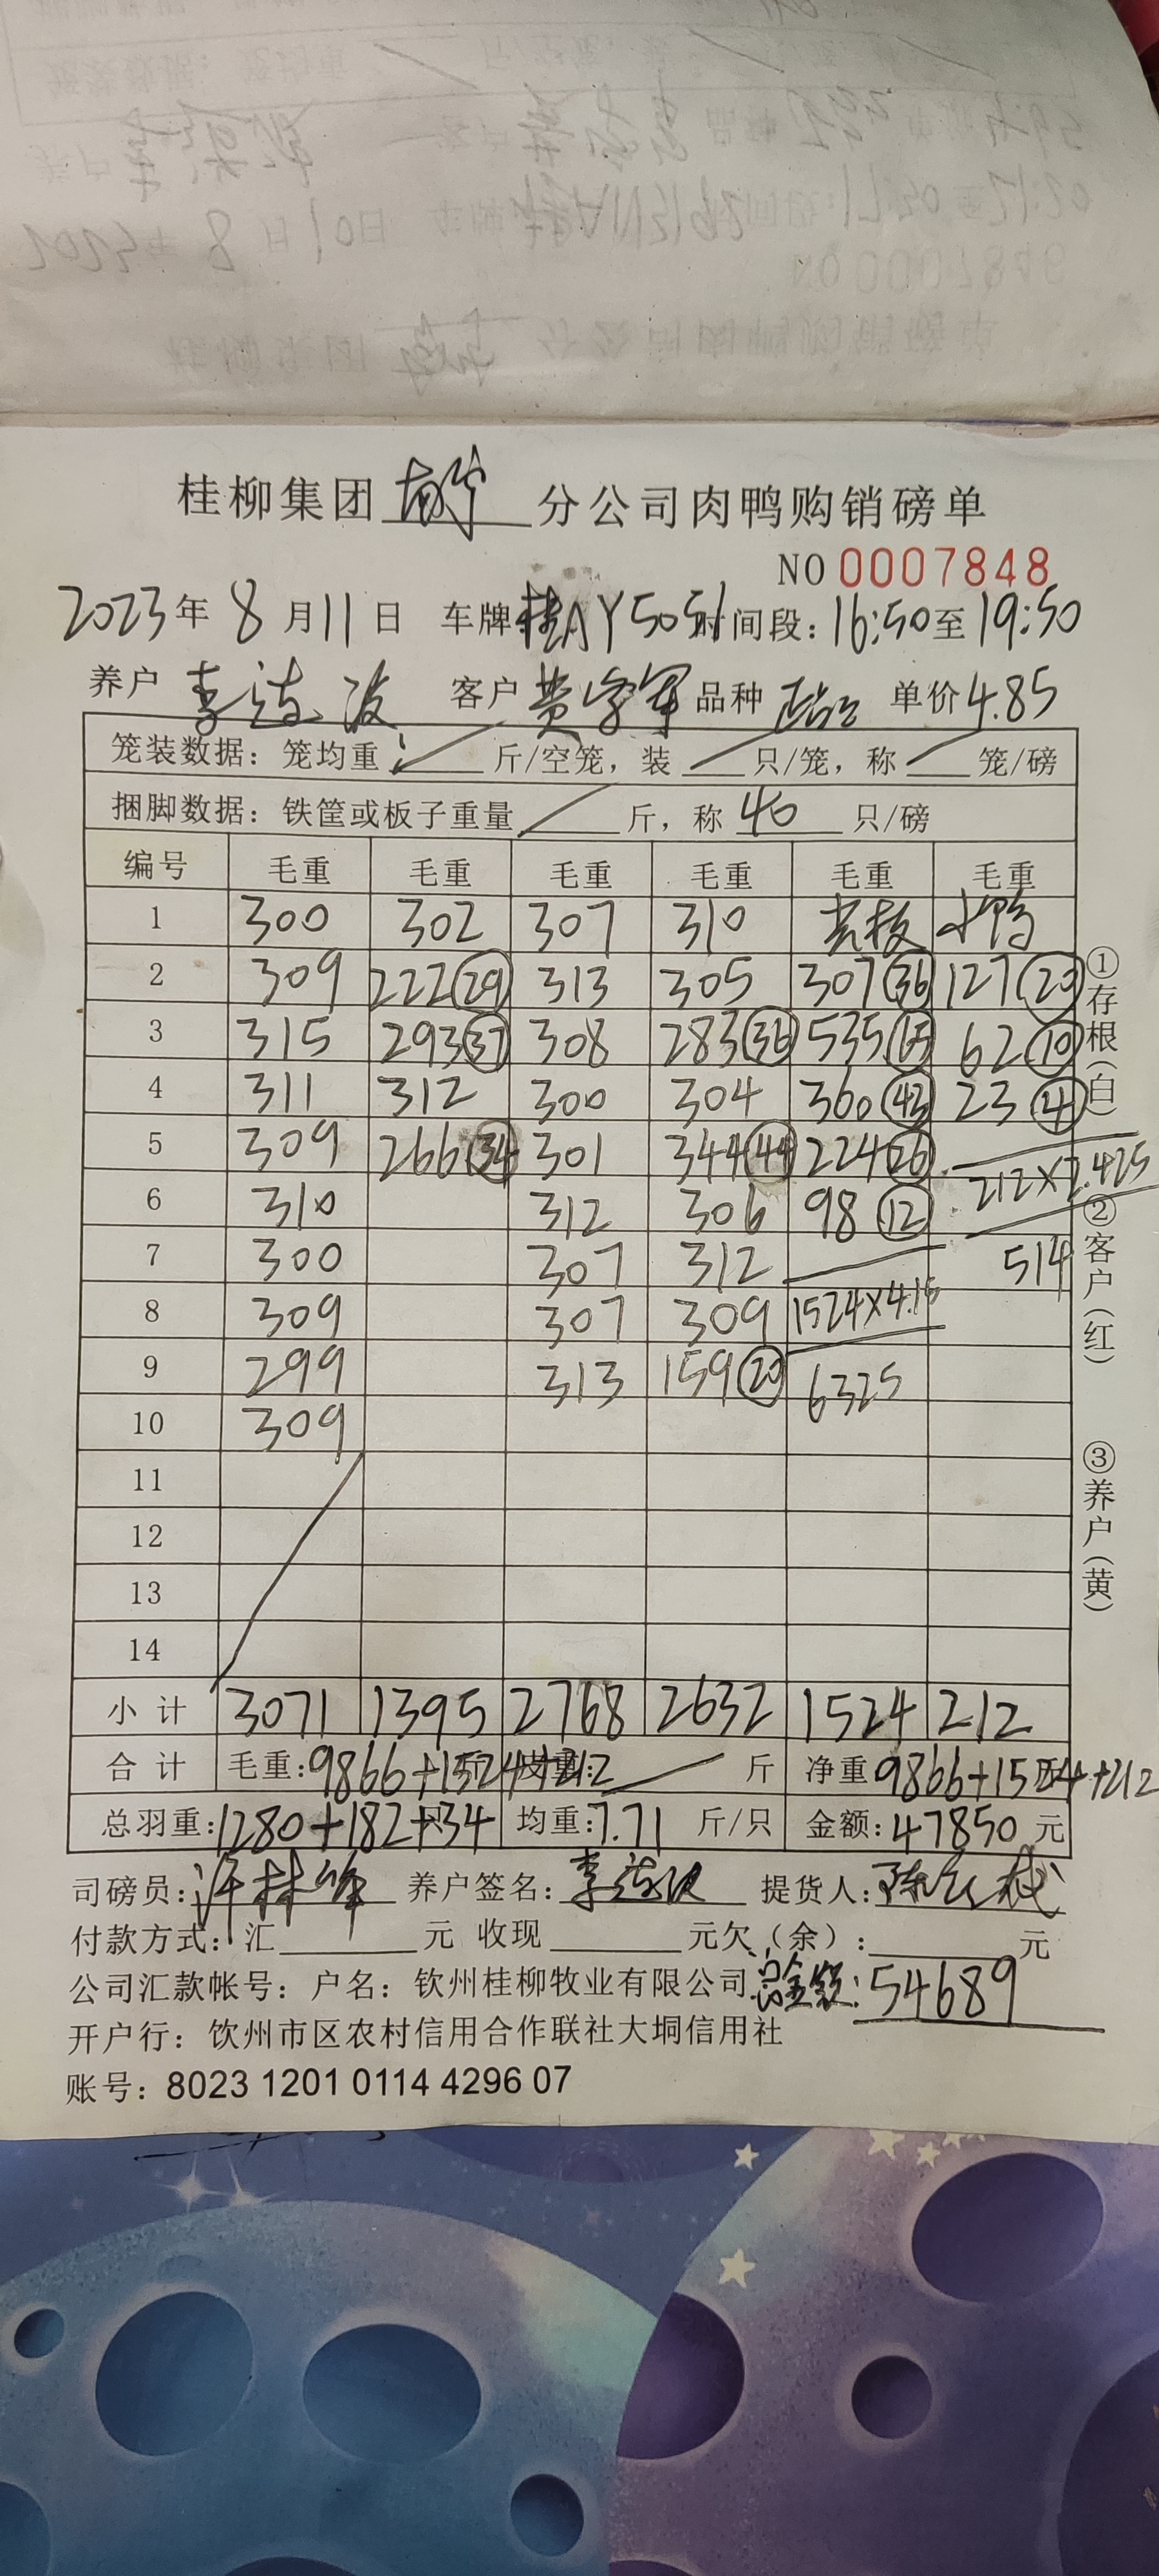 桂柳集团 南宁 分公司肉鸭购销磅单
NO 0007848
2023年 8月11日 车牌 桂AY5051 时间段：16:50至19:50
养户 李 波 客户 黄 军 品种 单价4.85
笼装数据：笼均重 斤/空笼，装 只/笼，称 笼/磅
捆脚数据：铁筐或板子重量 斤，称 40 只/磅
编号 毛重 毛重 毛重 毛重 毛重 毛重
1 300 302 307 310 小鸭
2 309 222(29) 313 305 307(36) 127(20)
3 315 293(37) 308 283(36) 535(65) 62(10)
4 311 312 300 304 360(43) 23(4)
5 309 266(34) 301 344(44) 224(26) 212×2.425
6 310 312 306 98(12)
7 300 307 312 514
8 309 307 309 1524×4.15
9 299 313 159(20) 6325
10 309
11
12
13
14
小计 3071 1395 2768 2632 1524 212
合计 毛重：9866+1524+212 皮重： 斤 净重 9866+1524+212
总羽重：1280+182+34 均重：7.71 斤/只 金额：47850 元
司磅员：许林峰 养户签名：李 波 提货人：陈
付款方式：汇 元 收现 元欠（余）： 元
公司汇款帐号：户名：钦州桂柳牧业有限公司 总金额：54689
开户行：饮州市区农村信用合作联社大垌信用社
账号：8023 1201 0114 4296 07
①存根（白）
②客户（红）
③养户（黄）